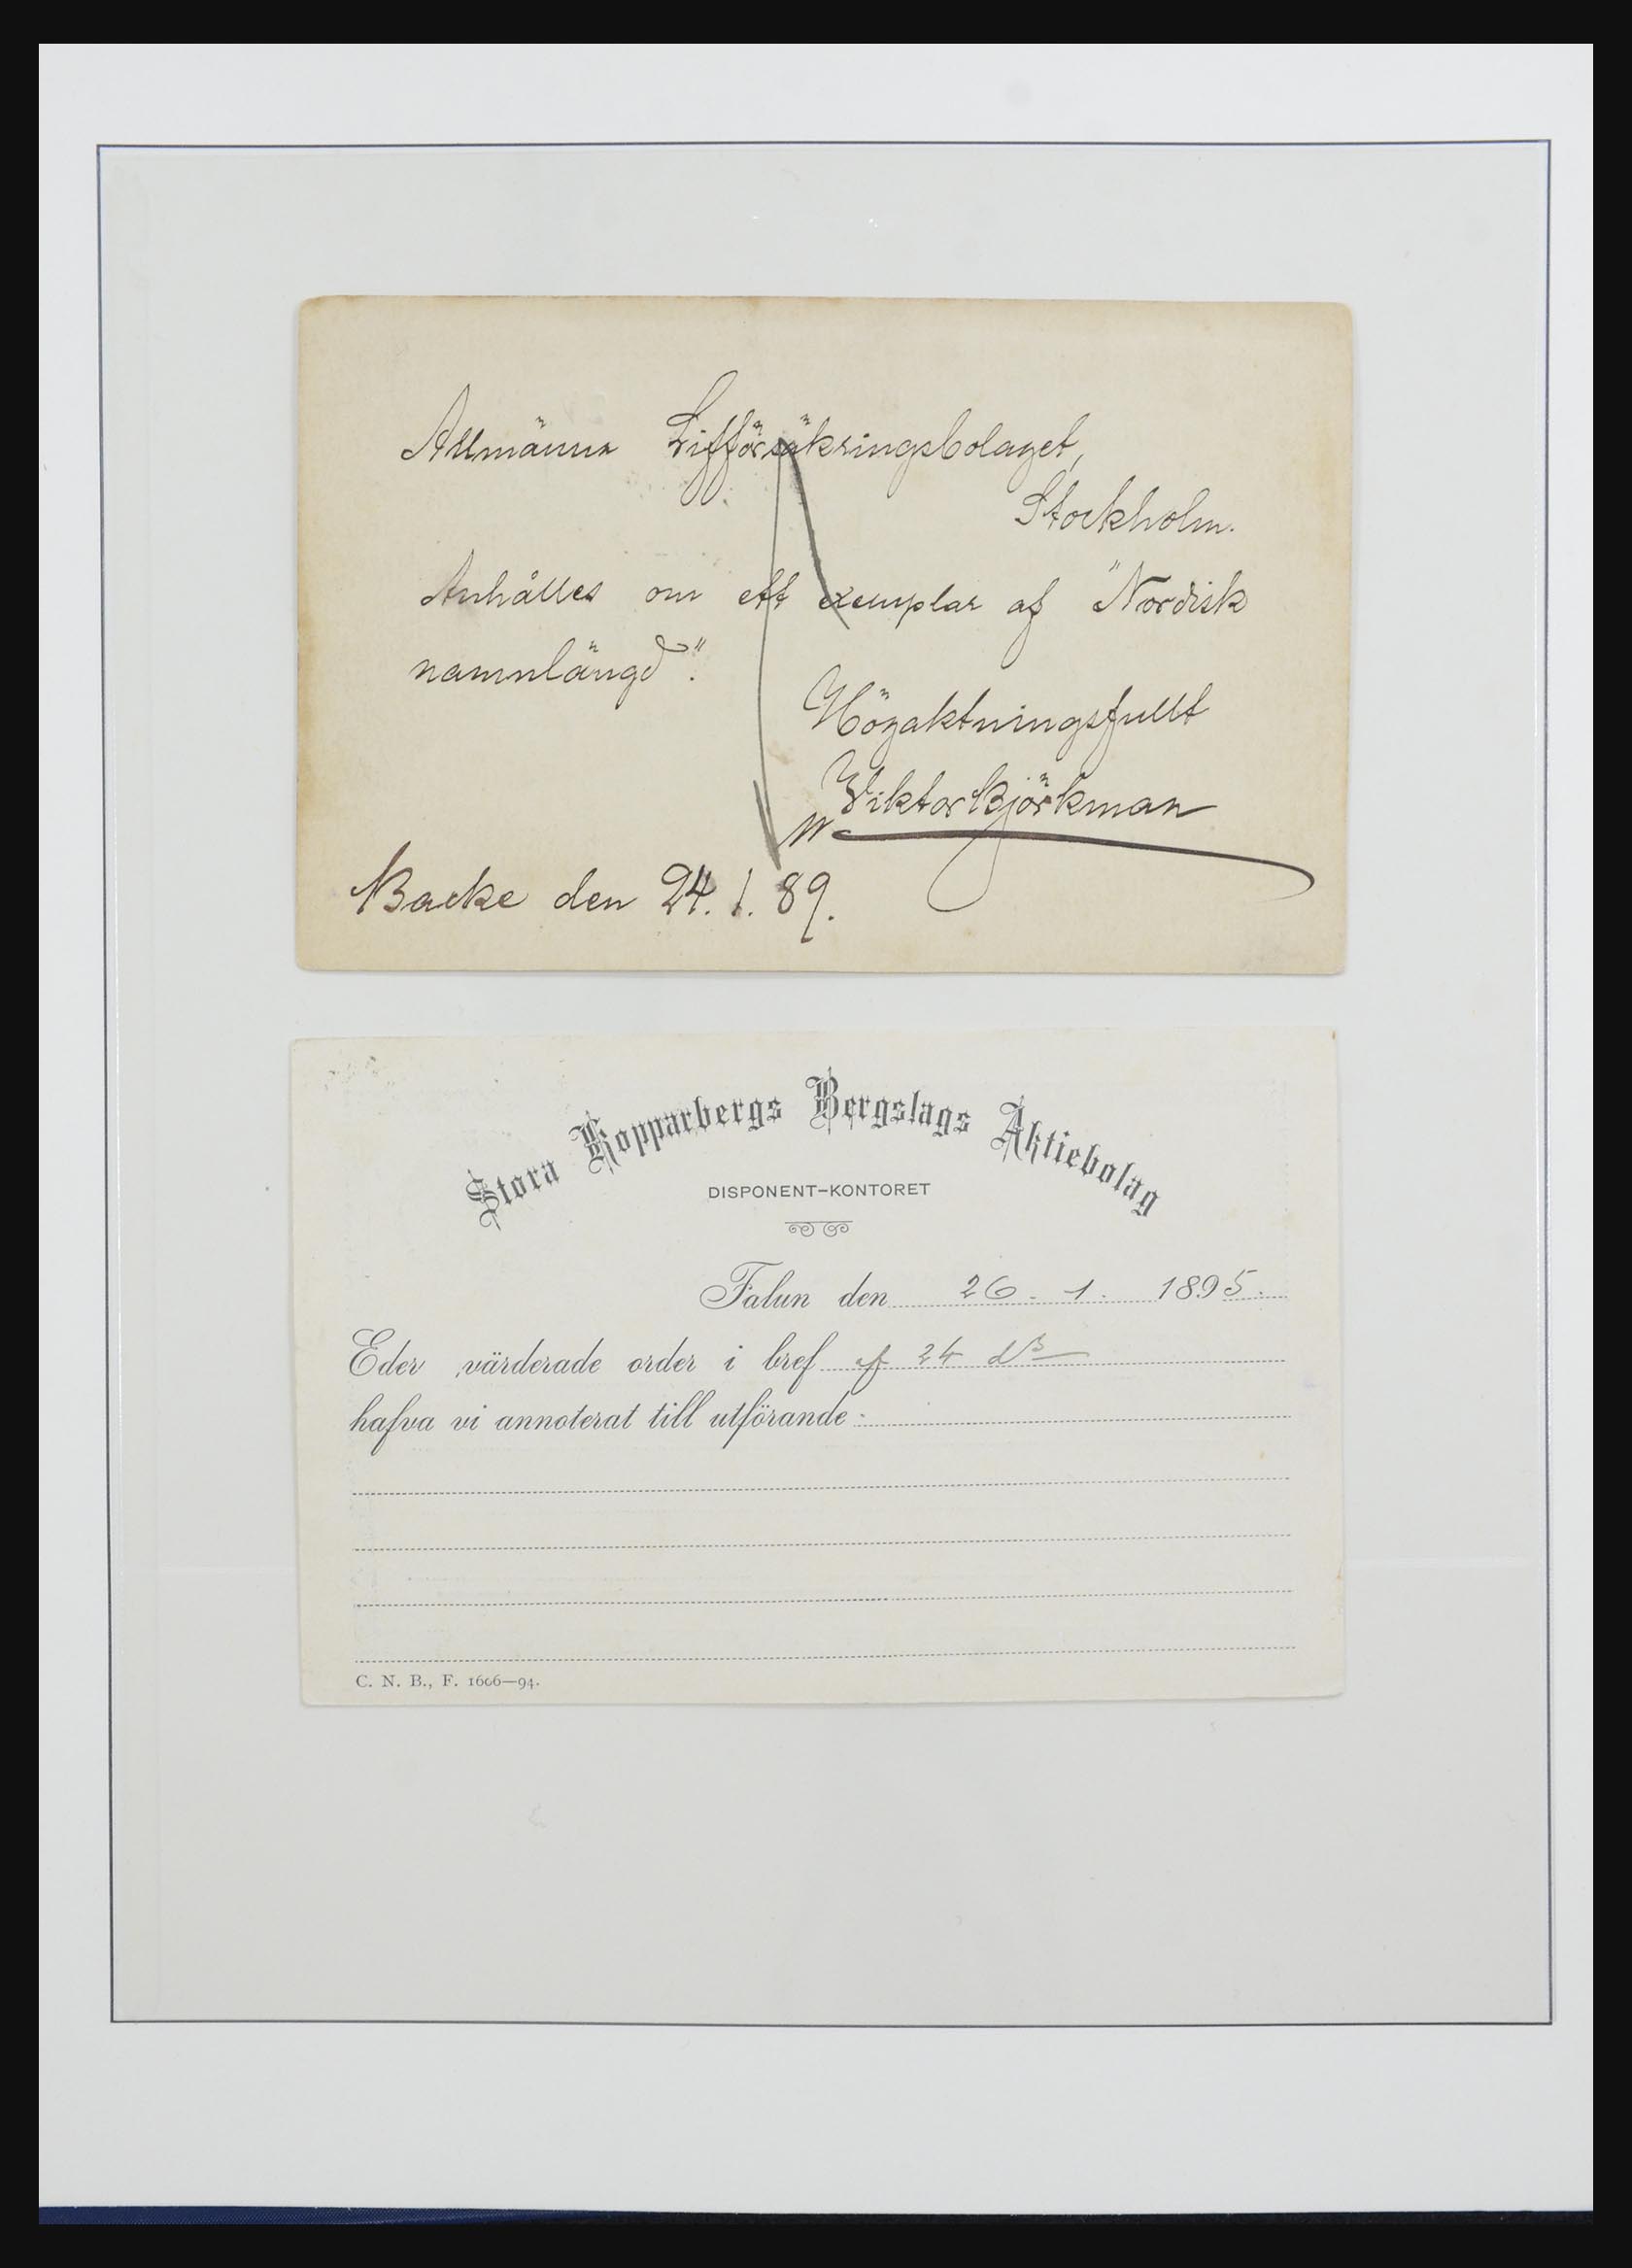 Allmänna Liffförsäkringsbolaget,
Stockholm.
Anhålles om ett exemplar af "Nordisk
namnlängd".
Högaktningsfullt
Viktor Björkman
Backe den 24.1.89.
Stora Kopparbergs Bergslags Aktiebolag
DISPONENT-KONTORET
Falun den 26. 1. 1895.
Eder värderade order i bref af 24 ds
hafva vi annoterat till utförande.
C. N. B., F. 1606—94.